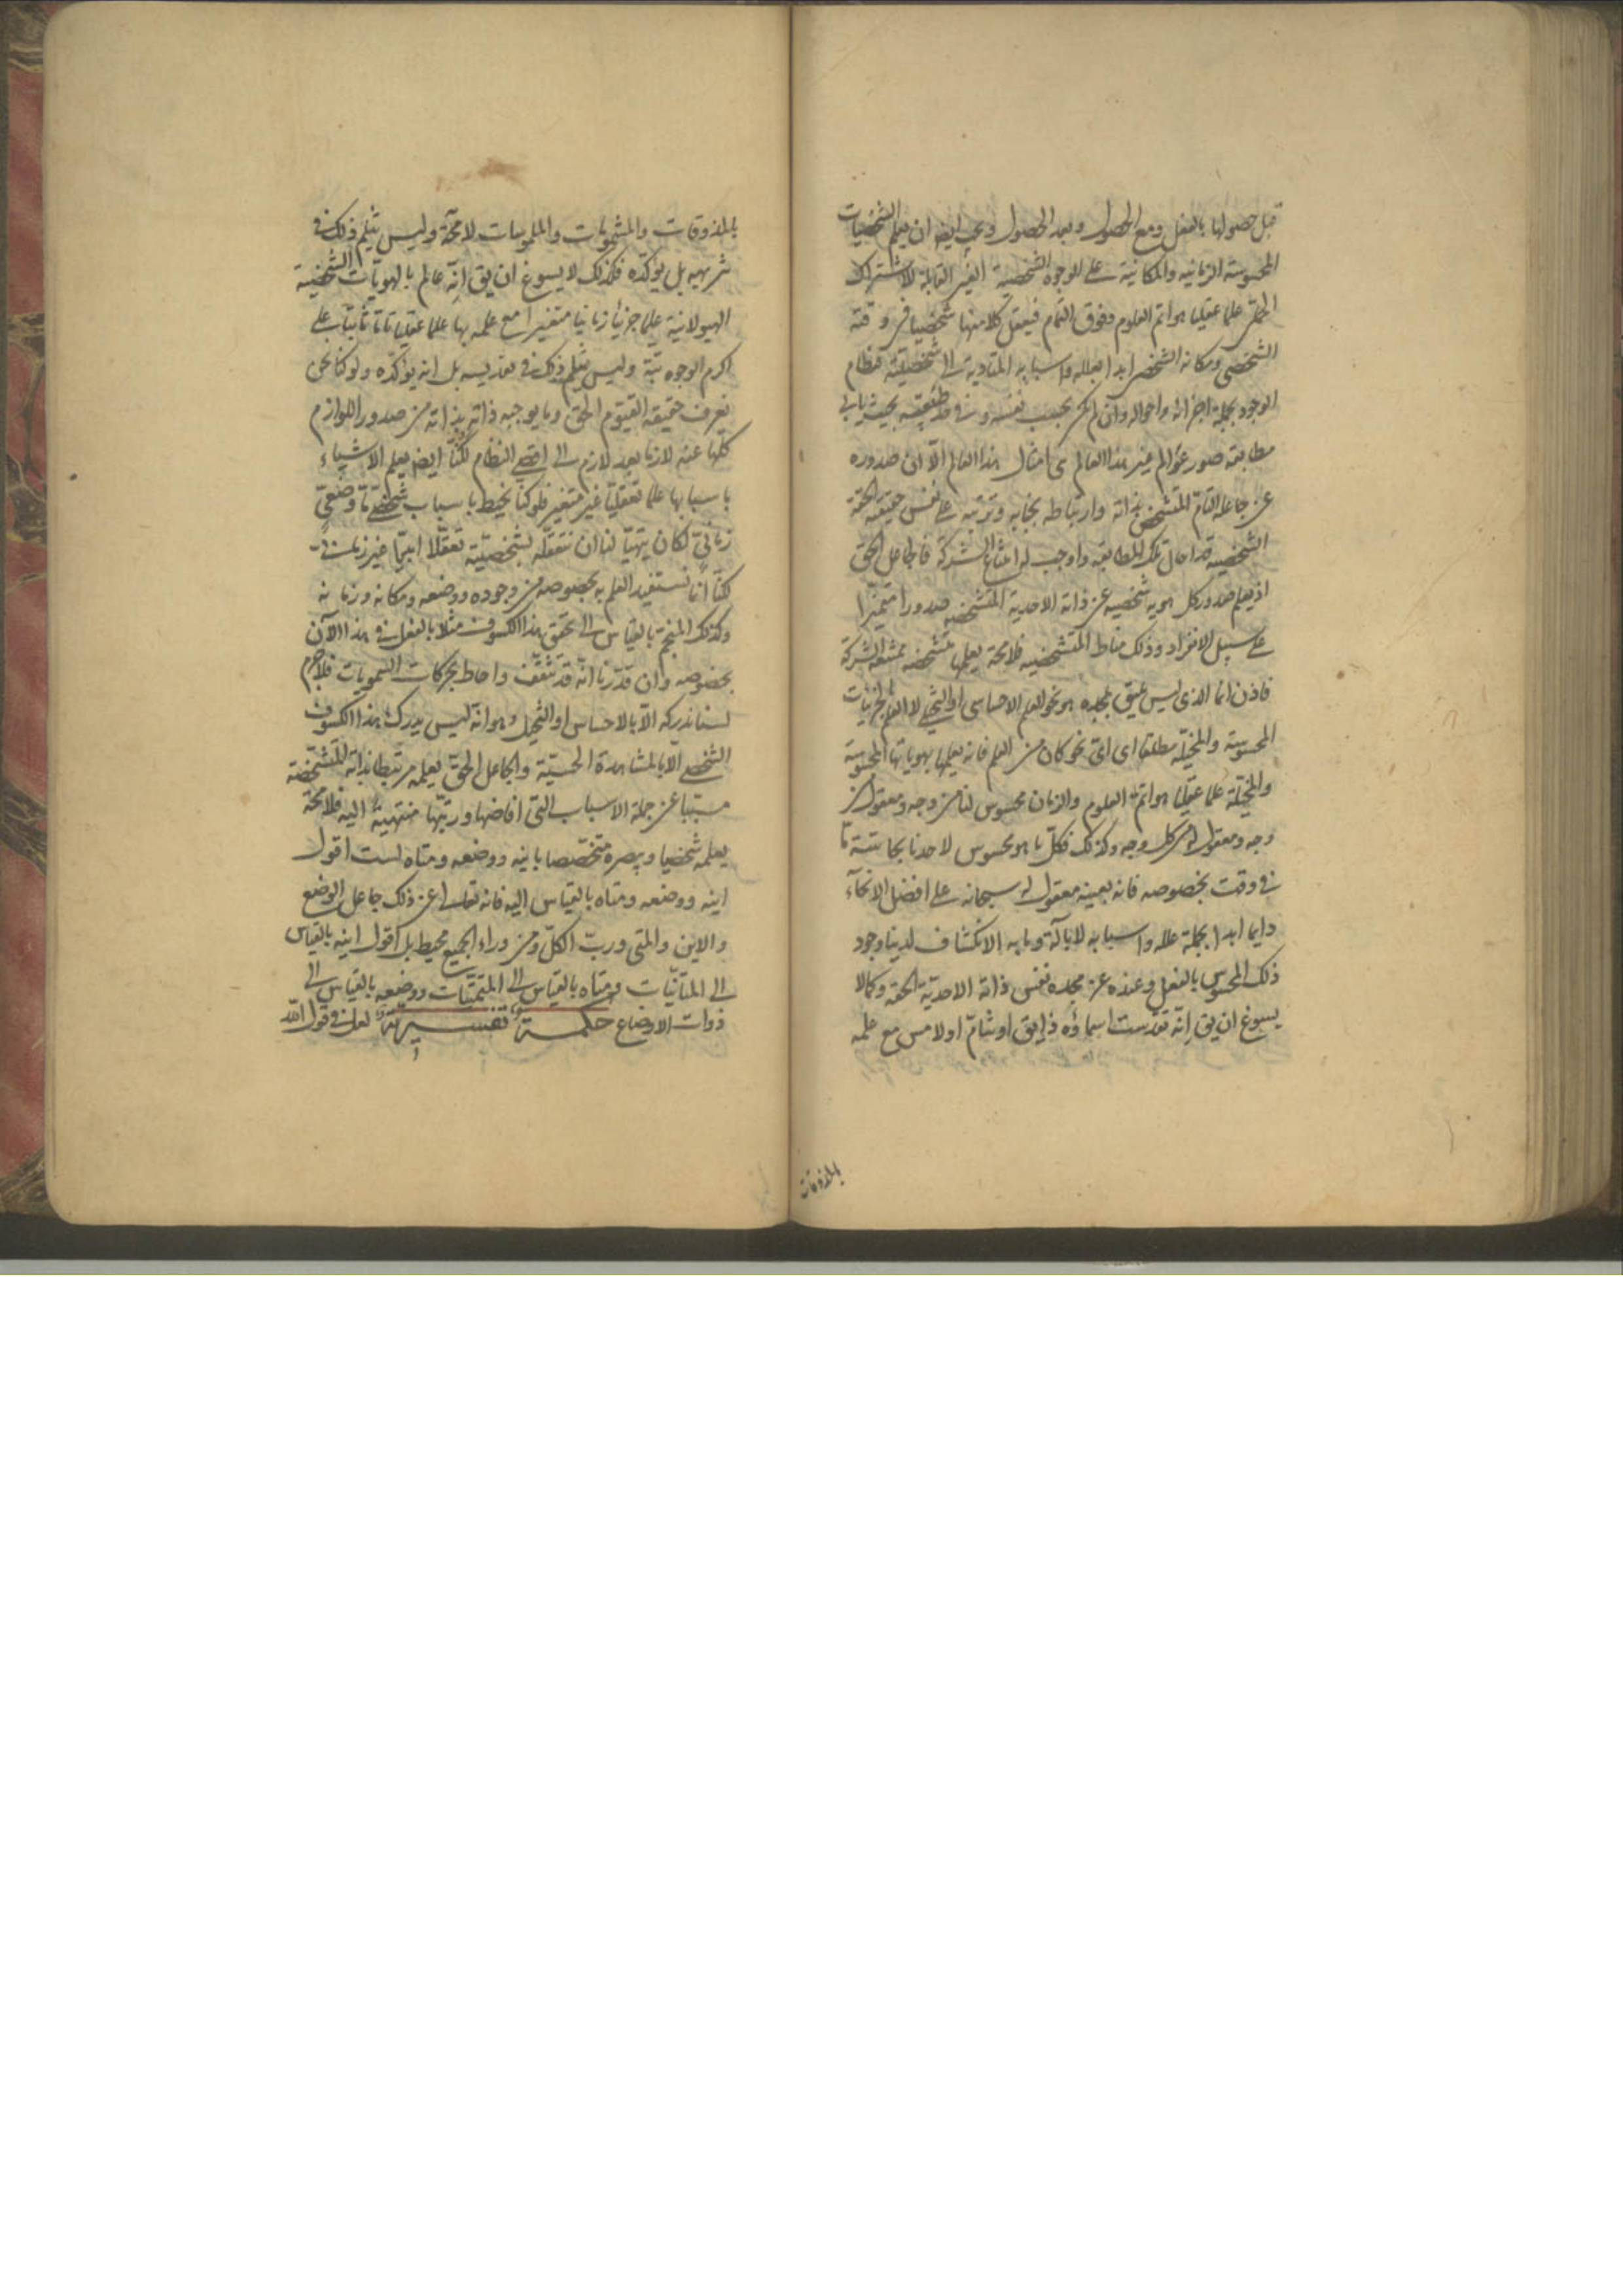 قبل حصولها بالفعل ومع الحصول وبعد الحصول ويجب ايضا ان يعلم الشخصيات
المحسوسة الزمانيه والمكانية على الوجوه الشخصية الغير القابلة للاشتراك
الحملى علما عقليا هو اتم العلوم وفوق التمام فيعقل كلا منها شخصيا فى وقته
الشخصى ومكانه الشخصى ابدا بعلله واسبابه المتادية الى شخصيته فنظام
الوجود بجملة اجزائه واحواله وان لم يكن بحسب نفسه وفى حد طبيعته بحيث يابى
مطابقة صور عوالم غير هذا العالم هى امثال هذا العالم الا ان صدوره
عن جاعله التام المتشخص بذاته وارتباطه بجنابه وترتبه على نفس حقيقته الحقة
الشخصيه قد احال تلك المطابقه واوجب له امتناع الشركة فالجاعل الحق
اذ يعلم صدور كل هويه شخصيه عن ذاته الاحدية المتشخصه صدورا متميزا
على سبيل الانفراد وذلك مناط المتشخصيه فلا محة يعلمها متشخصه ممتنعه الشركة
فاذن انما الذى ليس يليق بمجده هو نحو العلم الاحساسى او التخيلى لا العلم بالجزئيات
المحسوسة والمخيله مطلقا اى اى نحو كان من العلم فانه يعلمها بهوياتها المحسوسة
والمخيلة علما عقليا هو اتم العلوم والزمان محسوس لنا من وجه ومعقول من
وجه ومعقول له من كل وجه وكذلك فكل ما هو محسوس لاحدنا بحاسته ما
فى وقت بخصوصه فانه بعينه معقول له سبحانه على افضل الانحآء
دايما ابدا بجملة علله واسبابه لا بآلة وما به الانكشاف لدينا وجود
ذلك المحسوس بالفعل وعنده عز مجده نفس ذاته الاحديّة الحقة وكما لا
يسوغ ان يق انّه تقدست اسماؤه ذايق او شامّ او لامس مع علمه
بالمذوقات
بالمذوقات والمشمومات والملموسات لا محة وليس يثلم ذلك فى
تنزيهه بل يوكّده فكذلك لا يسوغ ان يق انّه عالم بالهويّات الشخصية
الهيولانية علما جزئيا زمانيا متغيرا مع علمه بها علما عقليا تاما ثابتا على
اكرم الوجوه بتّة وليس يثلم ذلك فى تقديسه بل انه يوكّده ولو كنا نحن
نعرف حقيقة القيّوم الحق وما يوجبه ذاته بذاته من صدور اللوازم
كلها عنه لازما بعد لازم الى اقصى النظام لكنّا ايضا نعلم الاشياء
باسبابها علما تعقليّا غير متغير فلو كنا نحيط باسباب شخصى ما وضعىّ
زمانىّ لكان يتهيّا لنا ان نتعقله بشخصيّته تعقّلا ابديّا غير زمانى
لكنّا انّما نستفيد العلم به بخصوصه من وجوده ووضعه ومكانه وزمانه
وكذلك المنجّم بالقياس الى تحقق هذا الكسوف مثلا بالفعل فى هذا الآن
بخصوصه وان قدّرنا انّه قد تثقّف واحاط بحركات السمويات فلا جرم
لسنا ندركه الّا بالاحساس او التخيل وهو انّه ليس يدرك هذا الكسوف
الشخصى الّا بالمشاهدة الحسيّة والجاعل الحقّ يعلمه مرتبطا بذاته المتشخصة
مسببا عن جملة الاسباب التى افاضها ورتبها منتهية اليه فلا محة
يعلمه شخصيا ويبصره متخصصا باينه ووضعه ومتاه لست اقول
اينه ووضعه ومتاه بالقياس اليه فانه تعالى عن ذلك جاعل الوضع
والاين والمتى وربّ الكلّ ومن وراء الجميع محيط بل اقول اينه بالقياس
الى المتأيّنات ومتاه بالقياس الى المتمتّيات ووضعه بالقياس الى
ذوات الاوضاع حكمة تفسيريّة لعل فى قول الله